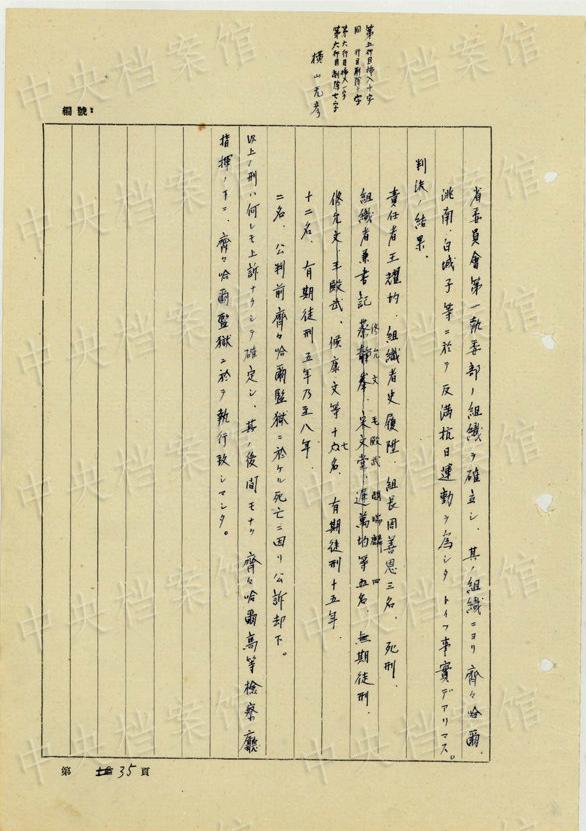 第五行目挿入十字
同 行目削除 字
第六行目挿入一字
第六行目削除七字
横山光彦
編號:
省委員會第一執委部ノ組織ヲ確立シ、其ノ組織ニヨリ齊々哈爾、
洮南、白城子等ニ於テ反滿抗日運動ヲ為シタトイフ事實デアリマス。
判決ノ結果、
責任者王耀鈞、組織者史履陞、組長周善恩三名、死刑、
修允文 毛殿武 四
組織者兼書記 等五名、無期徒刑、
修允文、王殿武、候康文等十七名、有期徒刑十五年、
十二名、有期徒刑五年乃至八年、
二名、公判前齊々哈爾監獄ニ於ケル死亡ニ因リ公訴却下。
以上ノ刑ハ何レモ上訴ナクシテ確定シ、其ノ後間モナク齊々哈爾高等檢察廳
指揮ノ下ニ、齊々哈爾監獄ニ於テ執行致シマシタ。
第 35 頁
中央档案馆